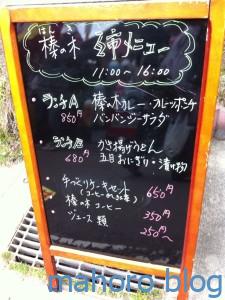 はん き
榛の木 メニュー
11:00〜16:00
・ランチA 榛の木カレー・フルーツポンチ
850円 バンバンジーサラダ
・ランチB かき揚げうどん
680円 五目おにぎり・漬け物
・手づくりケーキセット 650円
榛の木コーヒー 350円
・ジュース類 250円〜
mahoro blog